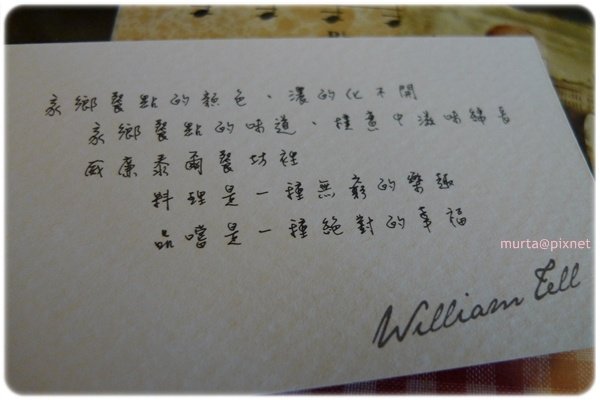 家鄉餐點的顏色、濃的化不開
家鄉餐點的味道、樸實中滋味綿長
威廉泰爾餐坊裡
料理是一種無窮的樂趣
品嚐是一種絕對的幸福
murta@pixnet
William Tell